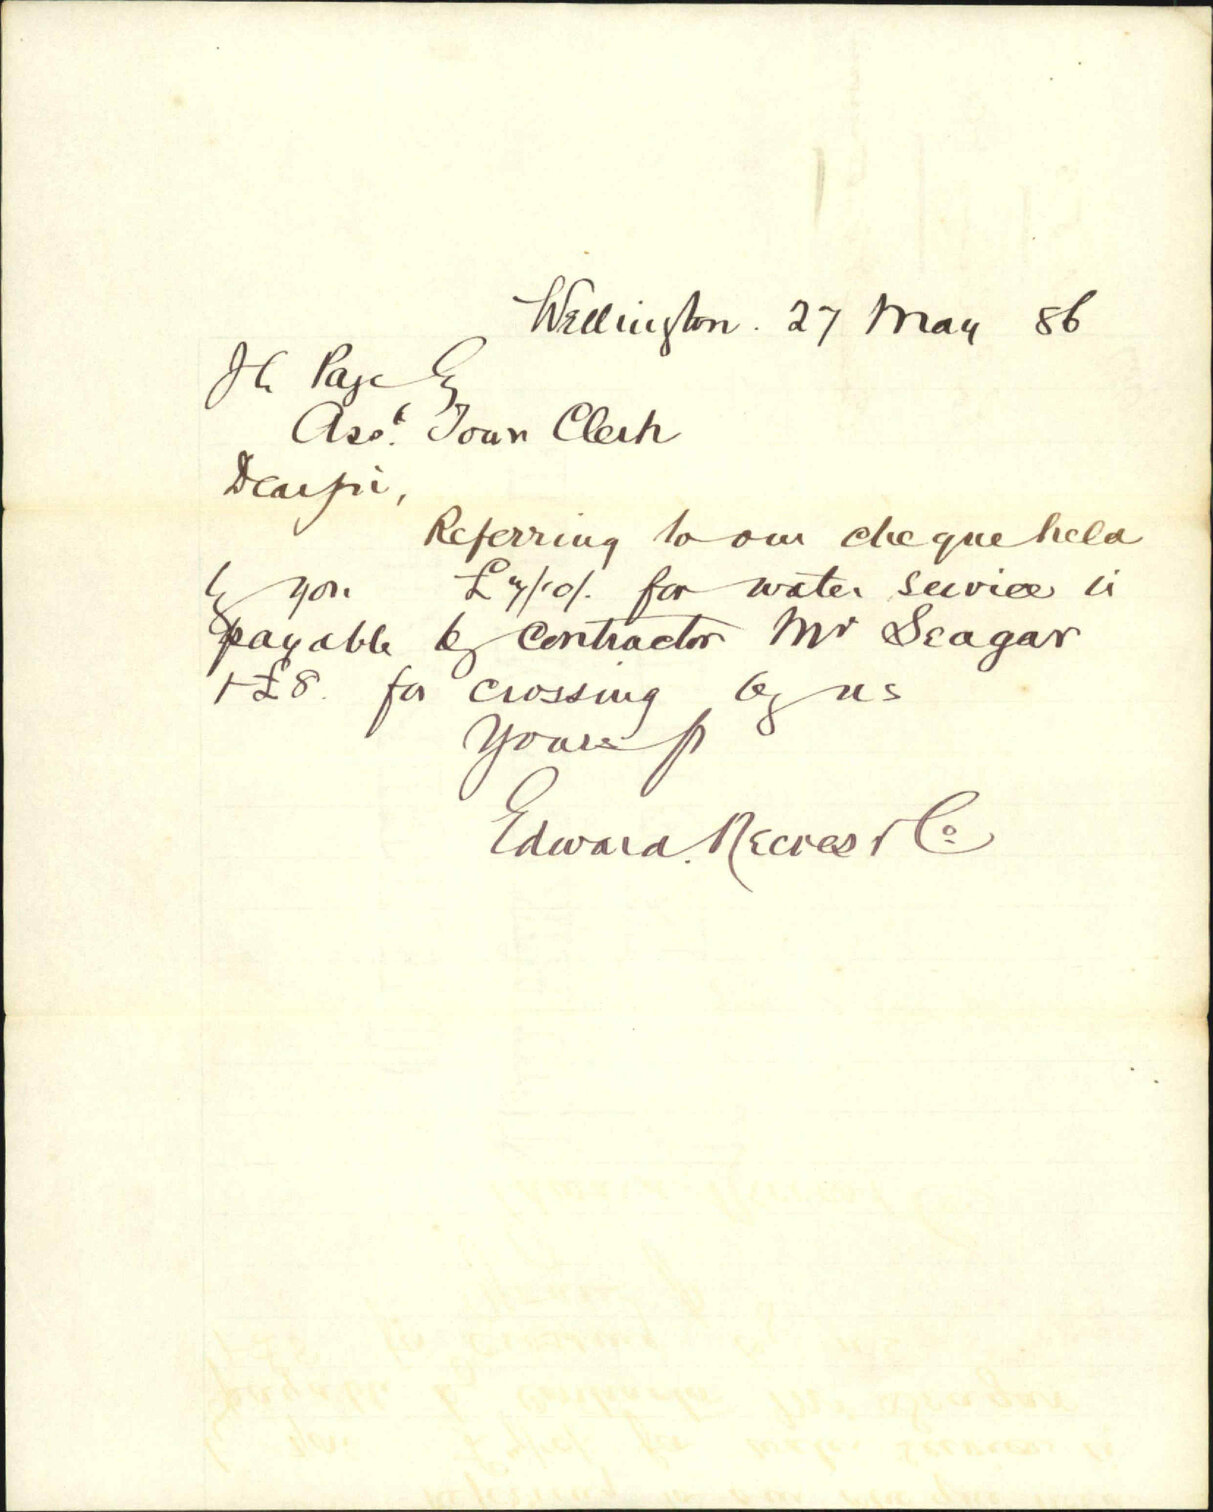 Wellington. 27 May 86
J C. Page Esq
Asst. Town Clerk
Dear Sir,
Referring to our cheque held
by you £7/10/. for water service is
payable by contractor Mr Seagar
+ £8. for crossing by us
Yours fr
Edward. Reeves & Co